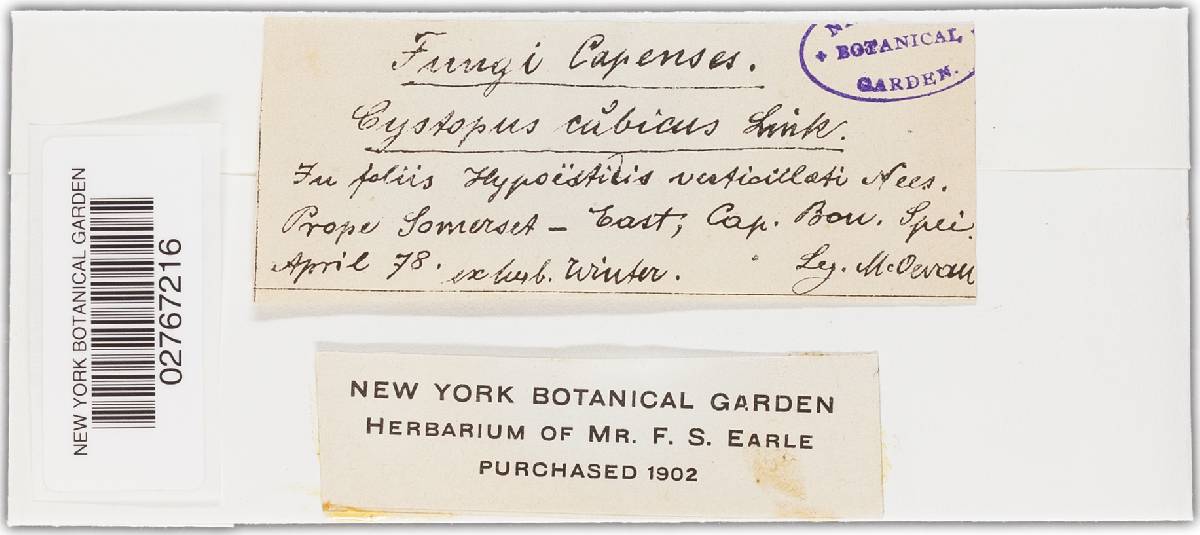 Fungi Capenses.
BOTANICAL
GARDEN.
Cystopus cubicus Link.
In foliis Hypoëstidis verticillati Nees.
Prope Somerset - East, Cap. Bon. Spei.
April 78. ex herb. Winter. Leg. McOwan
NEW YORK BOTANICAL GARDEN
02767216
NEW YORK BOTANICAL GARDEN
HERBARIUM OF MR. F. S. EARLE
PURCHASED 1902